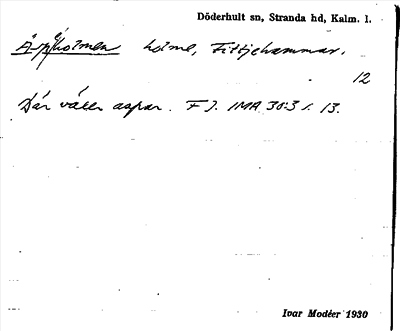 Döderhult sn, Stranda hd, Kalm. l.
Äspholmen holme, Fittjehammar.
12
Där växer aspar. F J. IMA 30:3 s. 13.
Ivar Modéer 1930